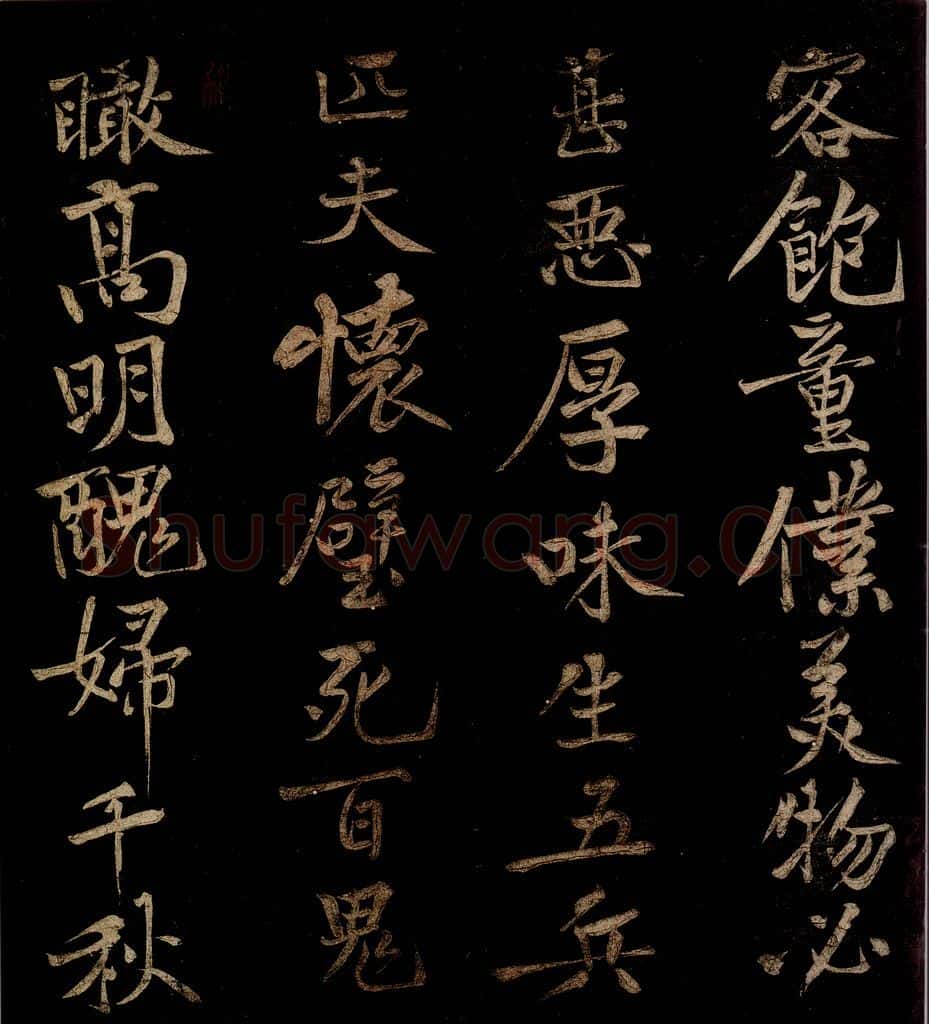 客飽童僕美物必
甚惡厚味生五兵
匹夫懷璧死百鬼
瞰高明醜婦千秋
Shufawang.CN